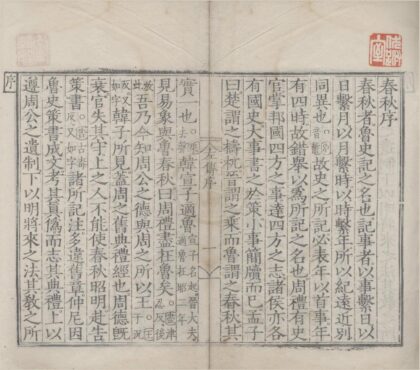 春秋序
春秋者魯史記之名也記事者以事繫日以
日繫月以月繫時以時繫年所以紀遠近別
同異也故史之所記必表年以首事年
有四時故錯舉以爲所記之名也周禮有史
官掌邦國四方之事達四方之志諸侯亦各
有國史大事書之於策小事簡牘而已孟子
曰楚謂之檮杌晉謂之乘而魯謂之春秋其
左傳序 一
實一也韓宣子適魯宣子名起晉大夫
見易象與魯春秋曰周禮盡在魯矣
吾乃今知周公之德與周之所以王
韓子所見蓋周之舊典禮經也周德旣
衰官失其守上之人不能使春秋昭明赴告
策書諸所記注多違舊章仲尼因
魯史策書成文考其眞僞而志其典禮上以
遵周公之遺制下以明將來之法其教之所
序